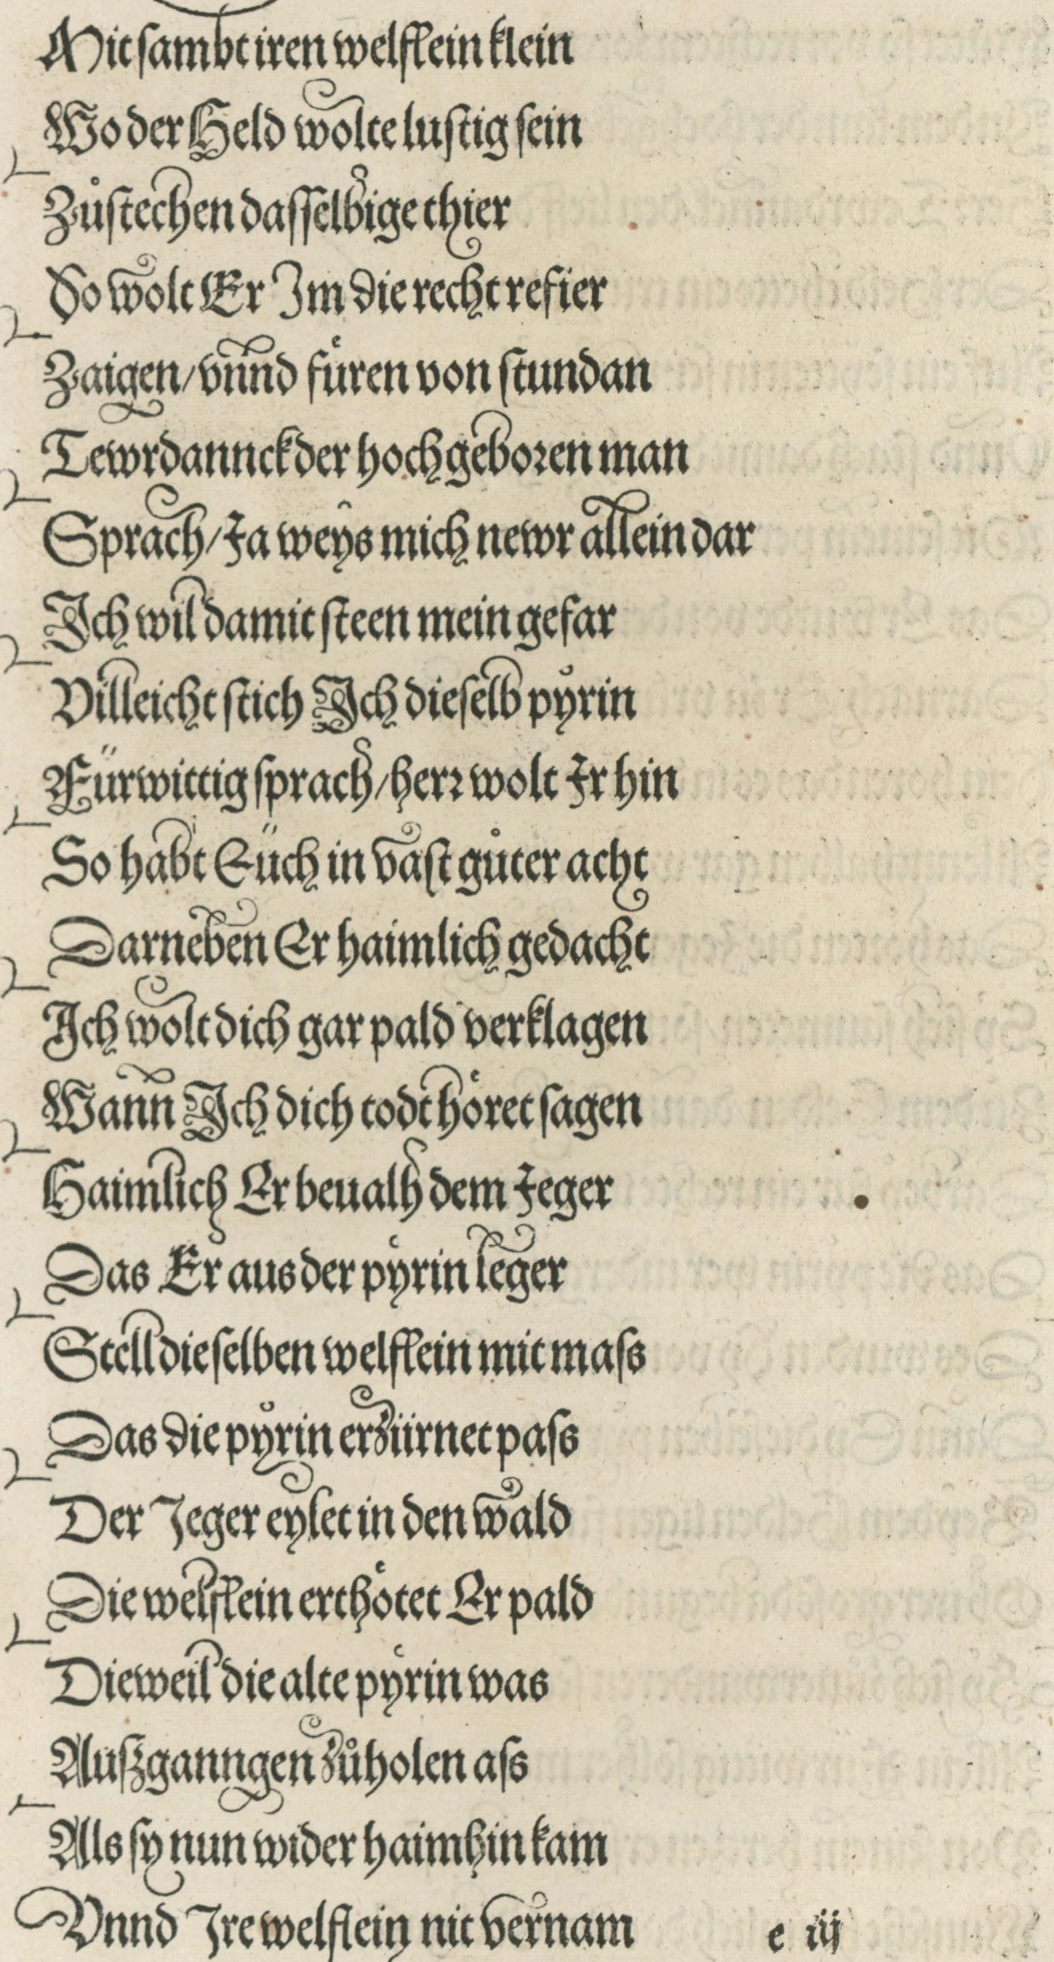 Mit sambt iren welfflein klein
Wo der Held wolte lustig sein
Zůstechen dasselbige thier
So wolt Er Im die recht refier
Zaigen/vnnd füren von stundan
Tewrdannck der hochgeboren man
Sprach/Ja weys mich newr allein dar
Ich wil damit steen mein gefar
Villeicht stich Ich dieselb pyrin
Fürwittig sprach/herr wolt Ir hin
So habt Eüch in vast gůter acht
Darneben Er haimlich gedacht
Ich wolt dich gar pald verklagen
Wann Ich dich todt höret sagen
Haimlich Er beualh dem Jeger
Das Er aus der pyrin leger
Stell dieselben welfflein mit mass
Das die pyrin erzürnet pass
Der Jeger eylet in den wald
Die welfflein erthötet Er pald
Dieweil die alte pyrin was
Außganngen zůholen ass
Als sy nun wider haimhin kam
Vnnd Ire welflein nit vernam
e iij